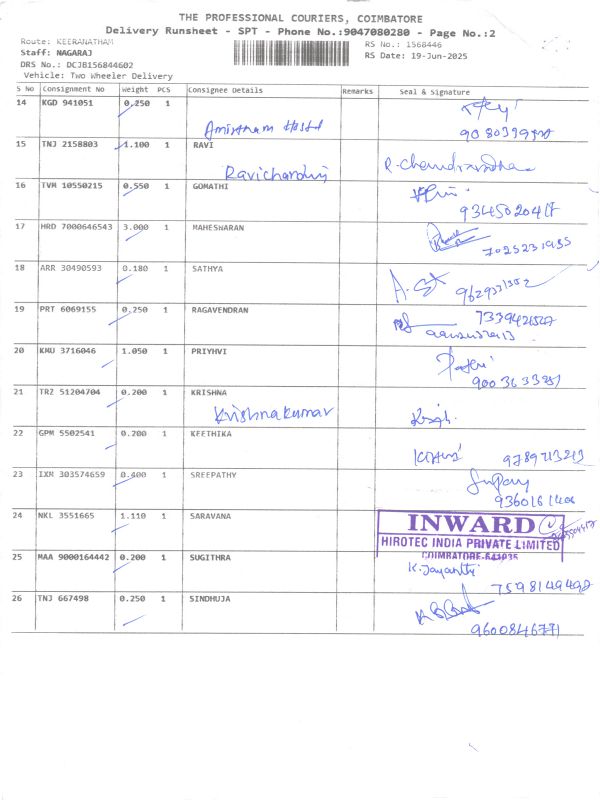 THE PROFESSIONAL COURIERS, COIMBATORE
Delivery Runsheet - SPT - Phone No.:9047080280 - Page No.:2
Route: KEERANATHAM
RS No.: 1568446
Staff: NAGARAJ
RS Date: 19-Jun-2025
DRS No.: DCJB156844602
Vehicle: Two Wheeler Delivery
S No Consignment No Weight PCS Consignee Details Remarks Seal & Signature
14 KGD 941051 0.250 1
15 TNJ 2158803 1.100 1 RAVI
16 TVM 10550215 0.550 1 GOMATHI
9345020417
17 HRD 7000646543 3.000 1 MAHESHARAN
7025231955
18 ARR 30490593 0.180 1 SATHYA
19 PRT 6069155 0.250 1 RAGAVENDRAN
20 KMU 3716046 1.050 1 PRIYHVI
21 TRZ 51204704 0.200 1 KRISHNA
Krishnakumar
22 GPM 5502541 0.200 1 KEETHIKA
9789713213
23 IXM 303574659 0.400 1 SREEPATHY
24 NKL 3551665 1.110 1 SARAVANA
INWARD
HIROTEC INDIA PRIVATE LIMITED
COIMBATORE-641035
25 MAA 9000164442 0.200 1 SUGITHRA
K. Jayanthi
7598149498
26 TNJ 667498 0.250 1 SINDHUJA
9600846771